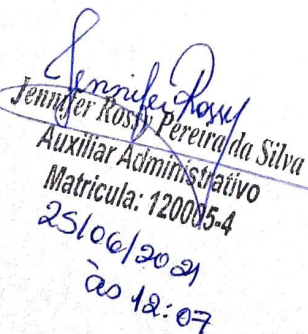 Jennifer Rossy
Jennifer Rossy Pereira da Silva
Auxiliar Administrativo
Matricula: 120005-4
25/06/2021
às 12:07